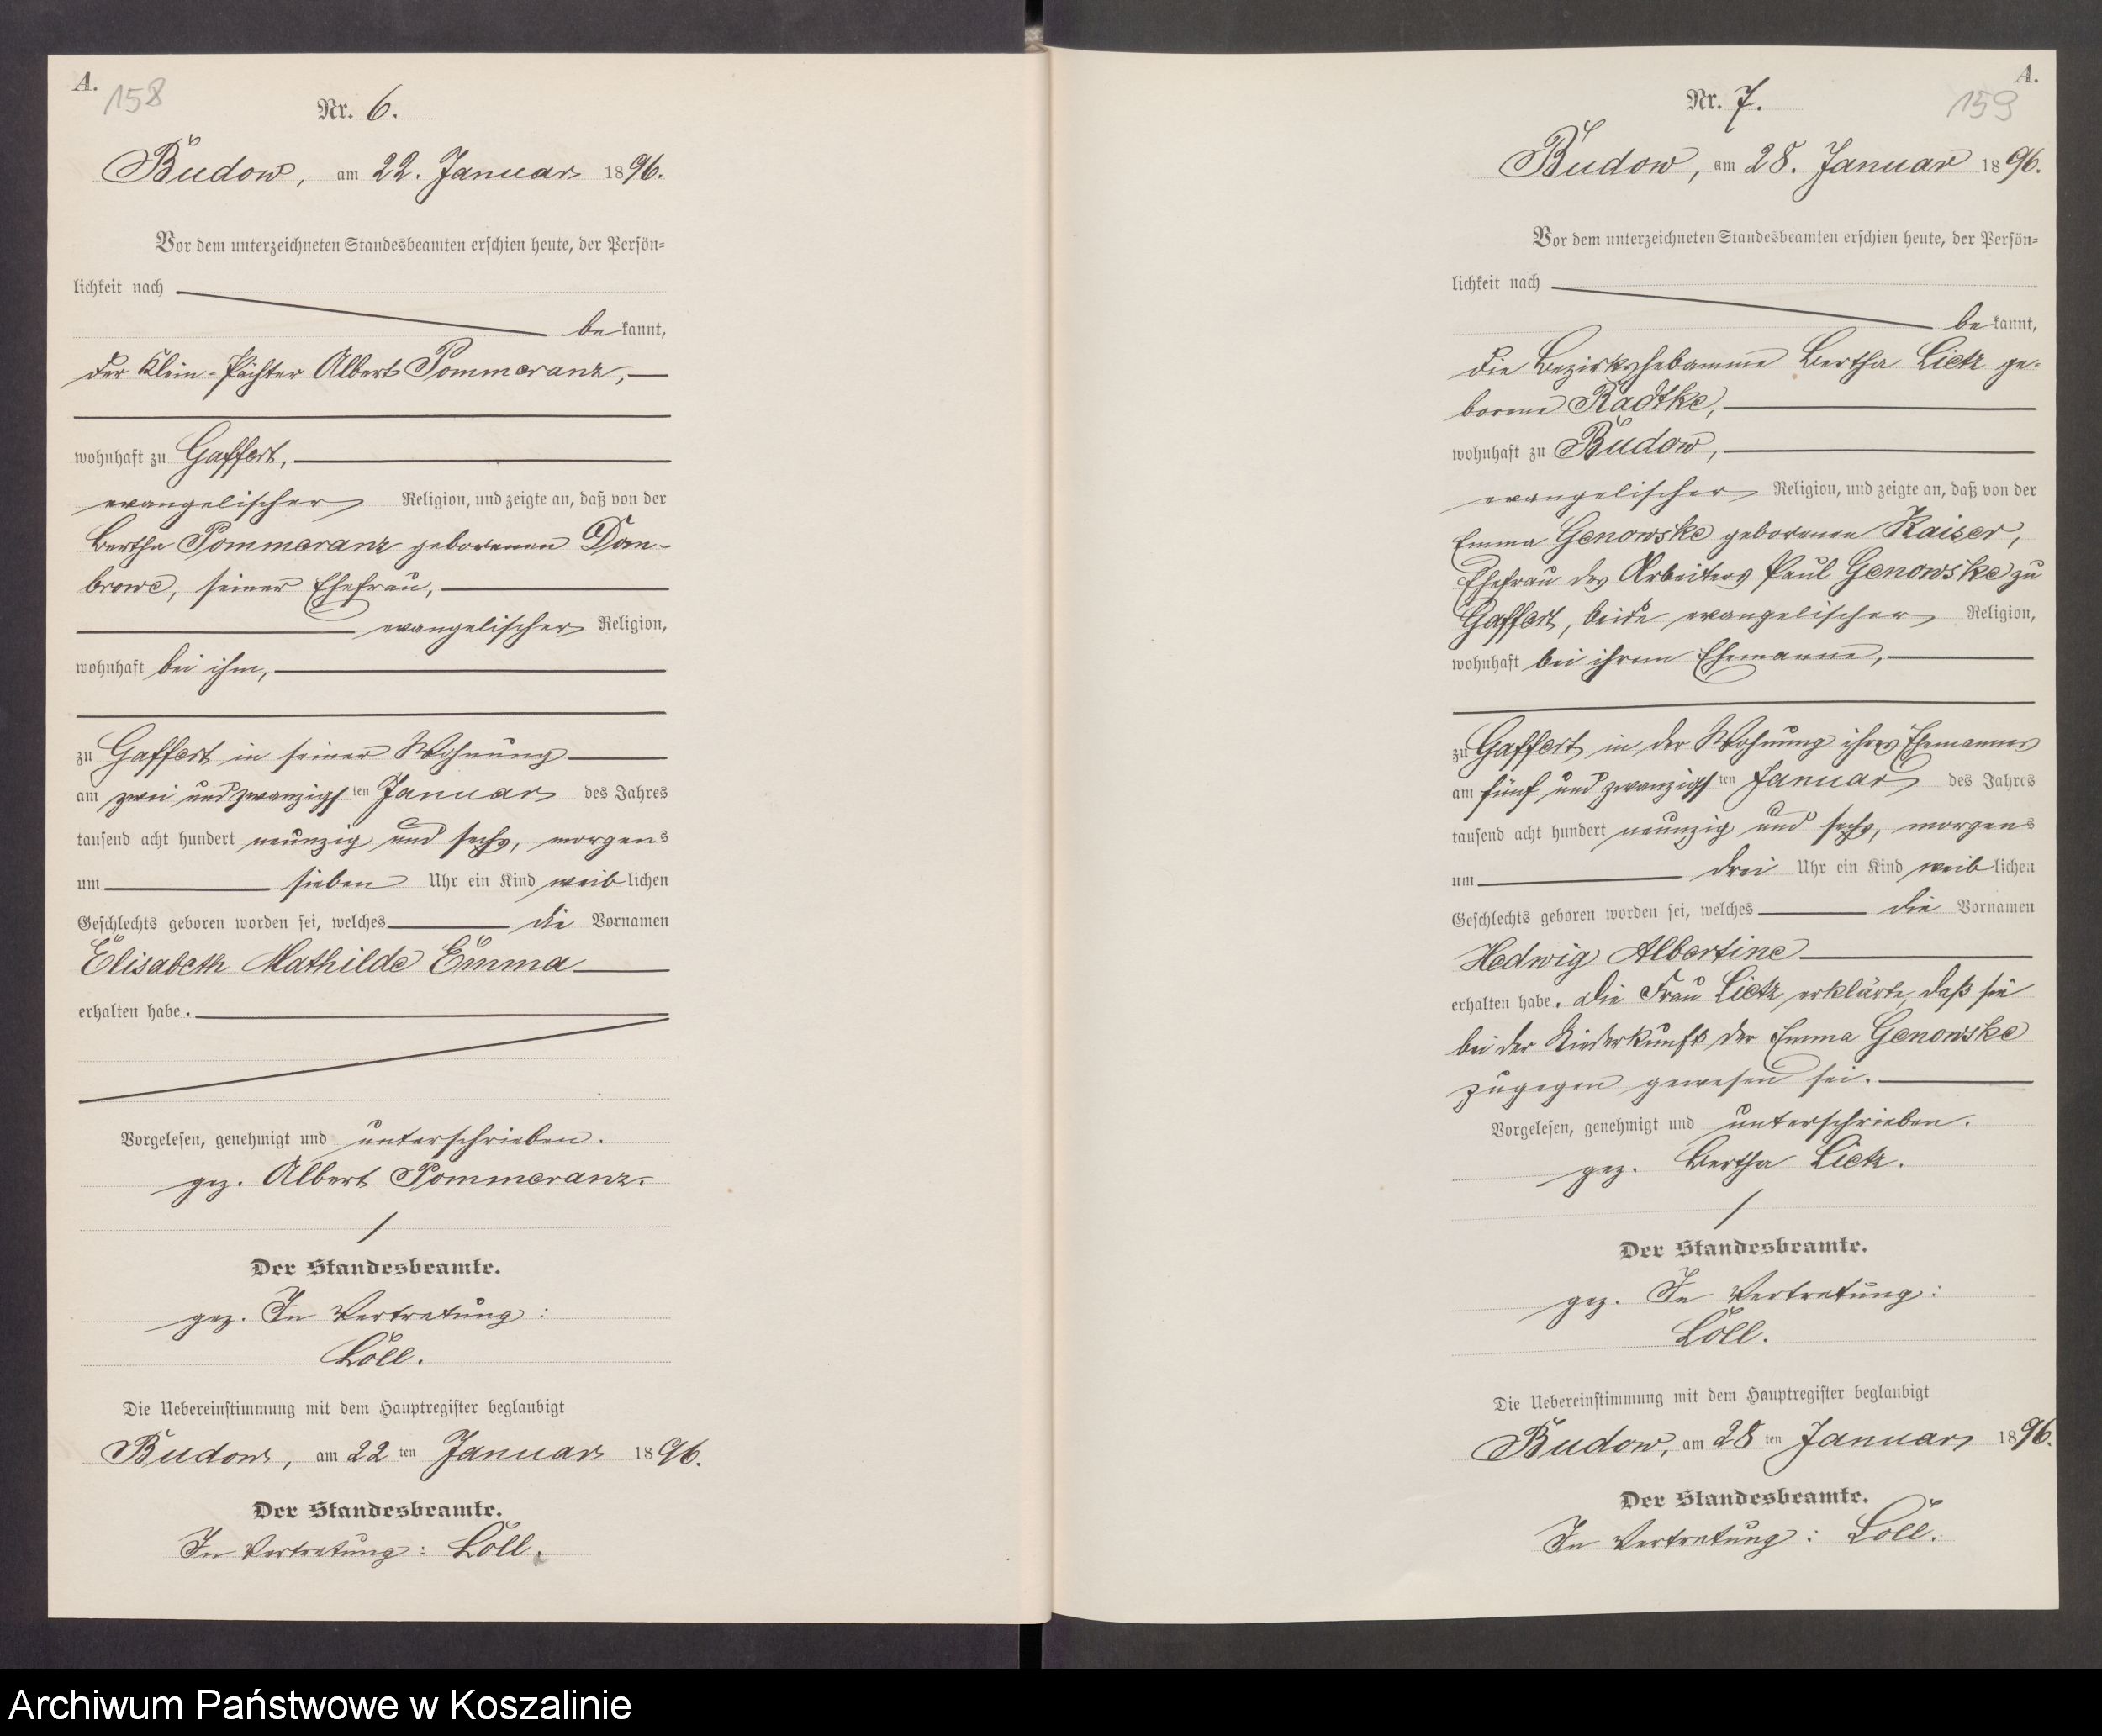 A.
158
Nr. 6.
Budow, am 22. Januar 1896.
Vor dem unterzeichneten Standesbeamten erschien heute, der Persön-
lichkeit nach
bekannt,
der Klein-Pächter Albert Pommeranz,
wohnhaft zu Gaffert,
evangelischer Religion, und zeigte an, daß von der
Bertha Pommeranz geborenen Dom-
browe, seiner Ehefrau,
evangelischer Religion,
wohnhaft bei ihm,
zu Gaffert in seiner Wohnung
am zwei und zwanzigsten Januar des Jahres
tausend acht hundert neunzig und sechs, morgens
um sieben Uhr ein Kind weiblichen
Geschlechts geboren worden sei, welches die Vornamen
Elisabeth Mathilde Emma
erhalten habe.
Vorgelesen, genehmigt und unterschrieben.
gez. Albert Pommeranz.
Der Standesbeamte.
gez. In Vertretung:
Löll.
Die Uebereinstimmung mit dem Hauptregister beglaubigt
Budow, am 22ten Januar 1896.
Der Standesbeamte.
In Vertretung: Löll.
A.
159
Nr. 7.
Budow, am 28. Januar 1896.
Vor dem unterzeichneten Standesbeamten erschien heute, der Persön-
lichkeit nach
bekannt,
die Bezirkshebamme Bertha Lietz ge-
borene Radtke,
wohnhaft zu Budow,
evangelischer Religion, und zeigte an, daß von der
Emma Genowske geborenen Kaiser,
Ehefrau des Arbeiters Paul Genowske zu
Gaffert, beide evangelischer Religion,
wohnhaft bei ihrem Ehemanne,
zu Gaffert in der Wohnung ihres Ehemannes
am fünf und zwanzigsten Januar des Jahres
tausend acht hundert neunzig und sechs, morgens
um drei Uhr ein Kind weiblichen
Geschlechts geboren worden sei, welches die Vornamen
Hedwig Albertine
erhalten habe. Die Frau Lietz erklärte, daß sie
bei der Niederkunft der Emma Genowske
zugegen gewesen sei.
Vorgelesen, genehmigt und unterschrieben.
gez. Bertha Lietz.
Der Standesbeamte.
gez. In Vertretung:
Löll.
Die Uebereinstimmung mit dem Hauptregister beglaubigt
Budow, am 28ten Januar 1896.
Der Standesbeamte.
In Vertretung: Löll.
Archiwum Państwowe w Koszalinie